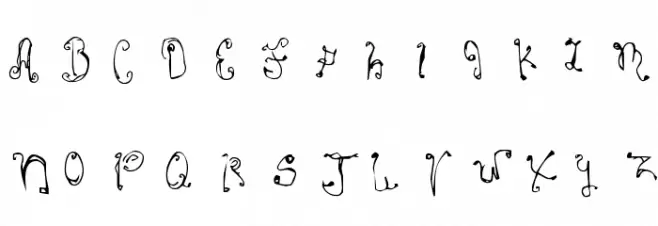 A B C D E F P h I J K L M
N O P Q R S T U V W X Y Z